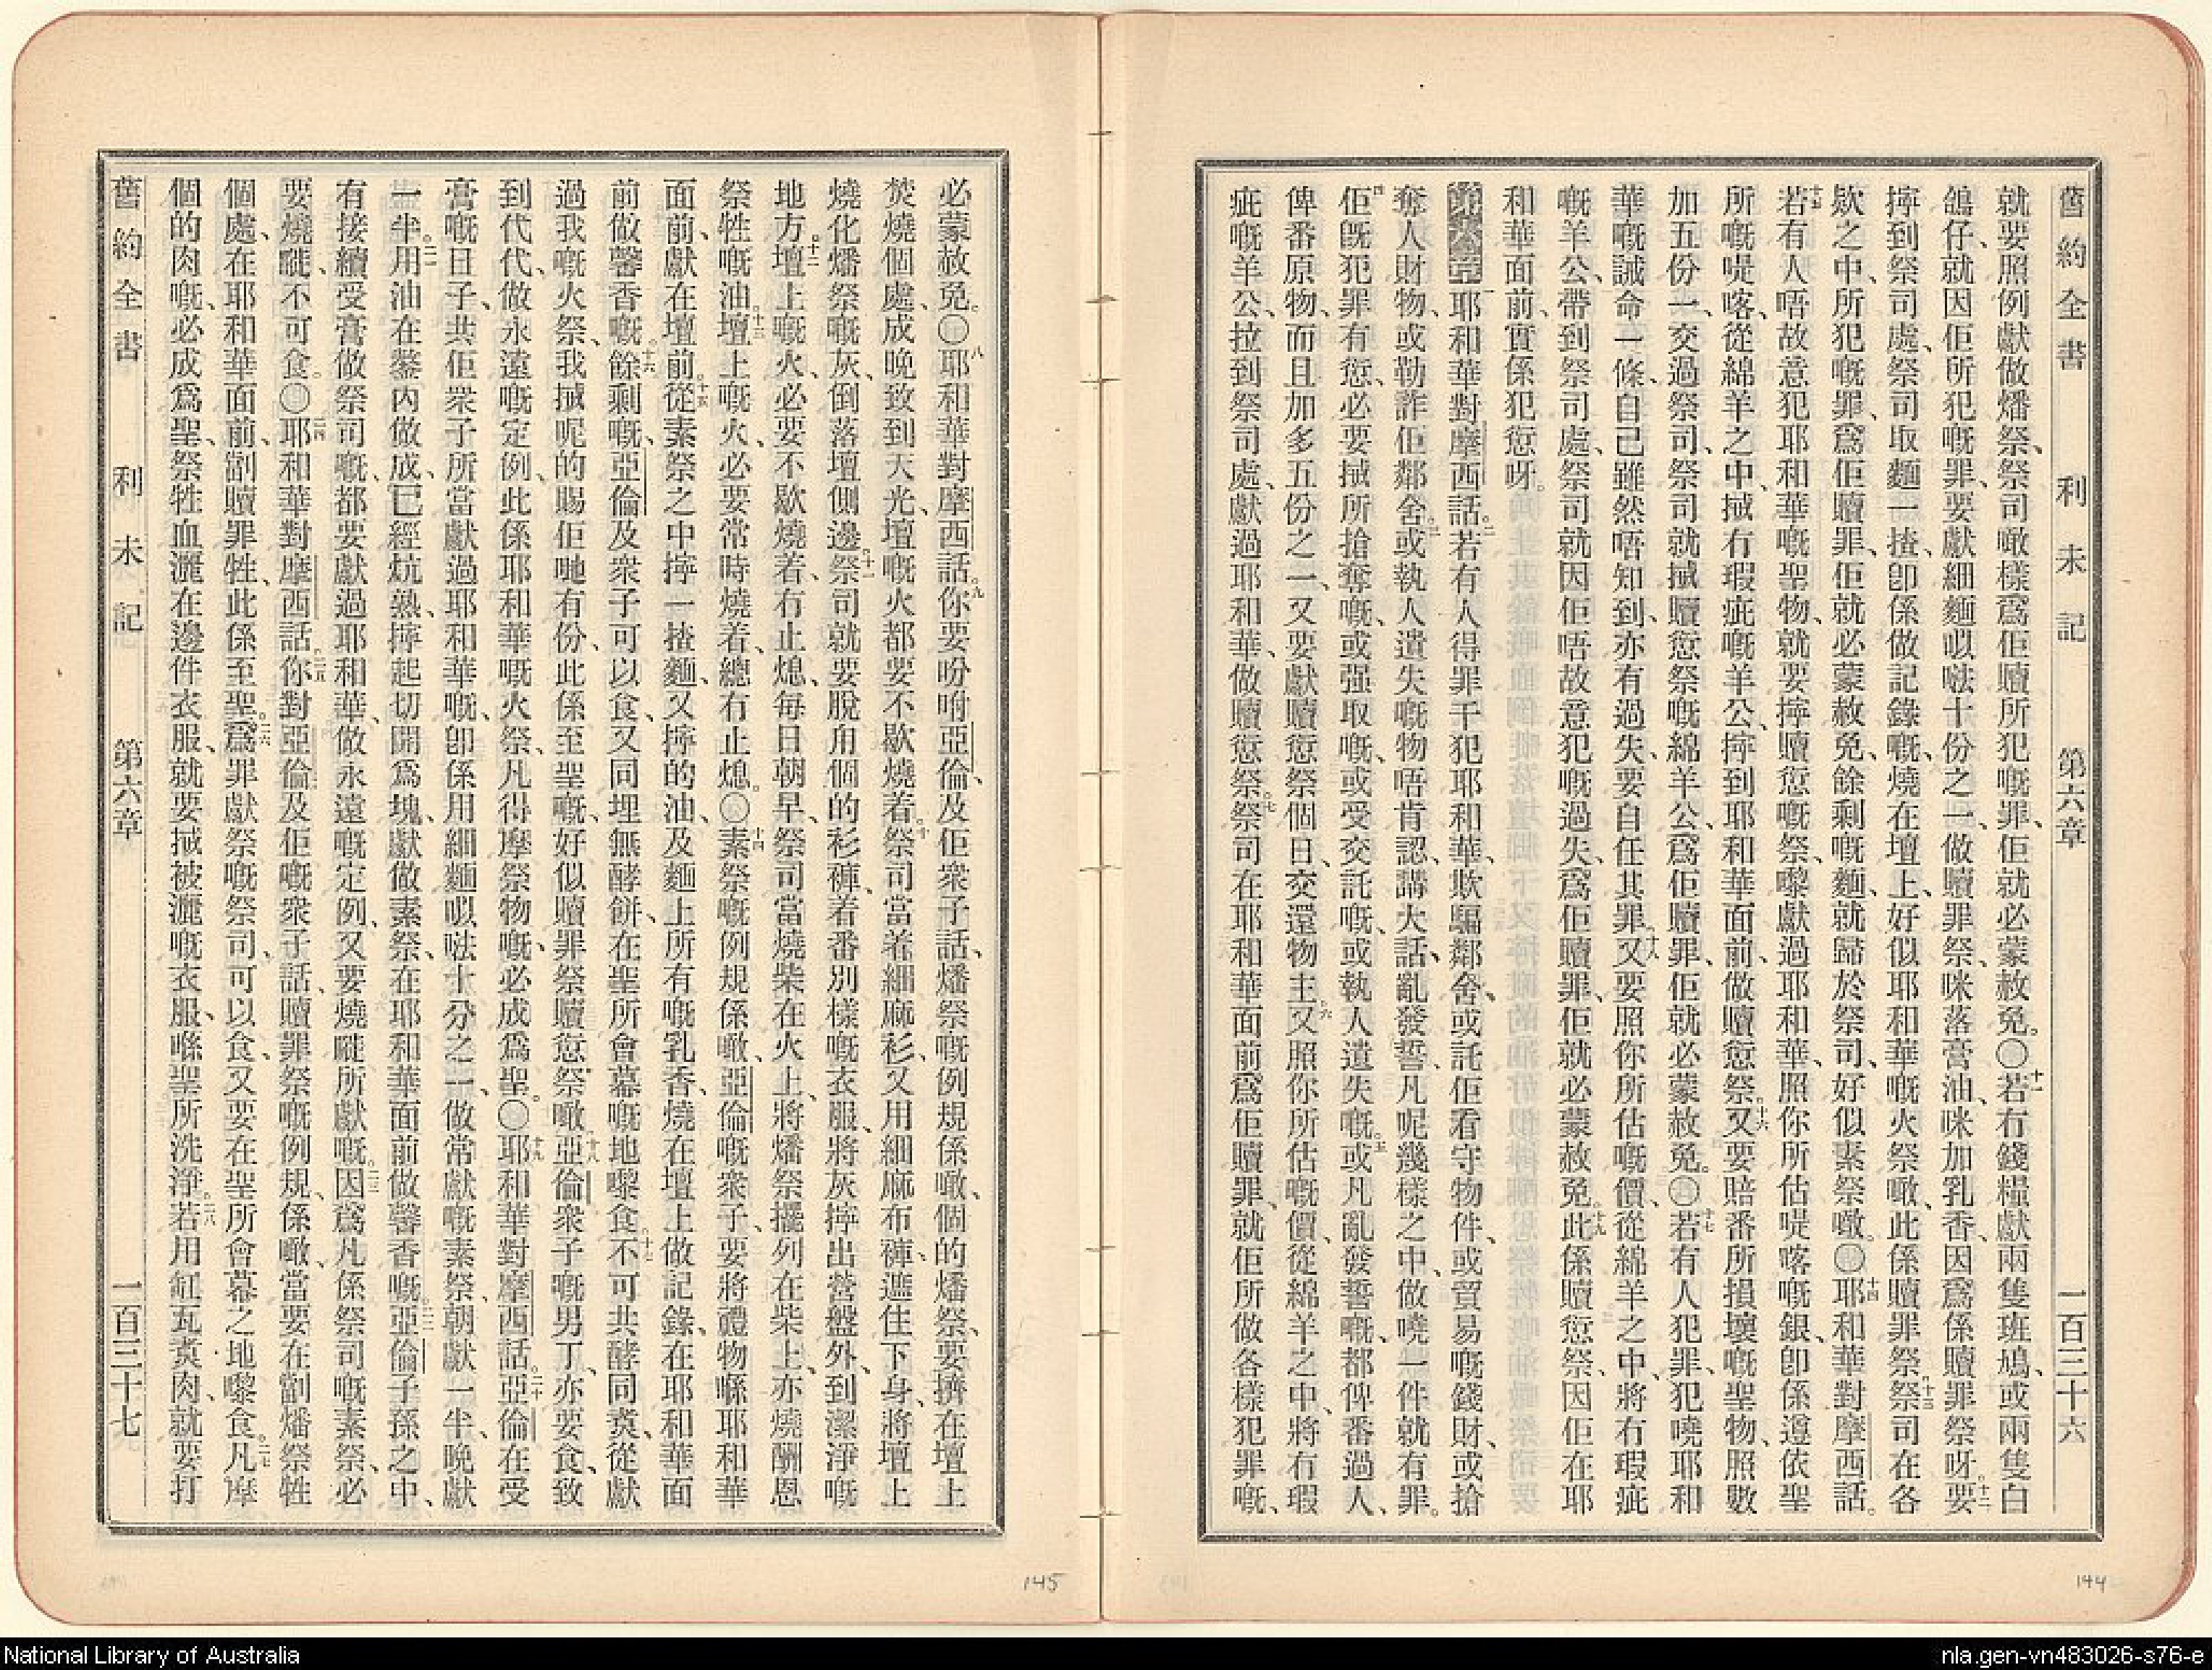 舊約全書　利未記　第六章　一百三十六
就要照例獻做燔祭、祭司噉樣爲佢贖所犯嘅罪、佢就必蒙赦免。〇十一若冇錢糧獻兩隻班鳩、或兩隻白
鴿仔、就因佢所犯嘅罪、要獻細麵㕥呿十份之一、做贖罪祭、咪落膏油、咪加乳香、因爲係贖罪祭呀。十二要
擰到祭司處、祭司取麵一揸、卽係做記錄嘅、燒在壇上、好似耶和華嘅火祭噉、此係贖罪祭。十三祭司在各
欵之中、所犯嘅罪、爲佢贖罪、佢就必蒙赦免、餘剩嘅麵、就歸於祭司、好似素祭噉。〇十四耶和華對摩西話。
十五若有人唔故意犯耶和華嘅聖物、就要擰贖愆嘅祭、嚟獻過耶和華、照你所估㖷喀嘅銀、卽係遵依聖
所嘅㖷喀、從綿羊之中、搣冇瑕疵嘅羊公、擰到耶和華面前、做贖愆祭。十六又要賠番所損壞嘅聖物、照數
加五份一、交過祭司、祭司就搣贖愆祭嘅綿羊公、爲佢贖罪、佢就必蒙赦免。〇十七若有人犯罪、犯嘵耶和
華嘅誡命一條、自己雖然唔知到、亦有過失、要自任其罪。十八又要照你所估嘅價、從綿羊之中、將冇瑕疵
嘅羊公、帶到祭司處、祭司就因佢唔故意犯嘅過失、爲佢贖罪、佢就必蒙赦免。十九此係贖愆祭、因佢在耶
和華面前、實係犯愆呀。
第六章一耶和華對摩西話。二若有人得罪干犯耶和華、欺騙鄰舍、或託佢看守物件、或貿易嘅錢財、或搶
奪人財物、或勒詐佢鄰舍。三或執人遺失嘅物唔肯認、講大話、亂發誓、凡呢幾樣之中、做嘵一件就有罪。
四佢旣犯罪有愆、必要搣所搶奪嘅、或强取嘅、或受交託嘅、或執人遺失嘅。五或凡亂發誓嘅、都俾番過人、
俾番原物、而且加多五份之一、又要獻贖愆祭個日、交還物主。六又照你所估嘅價、從綿羊之中、將冇瑕
疵嘅羊公、拉到祭司處、獻過耶和華、做贖愆祭。七祭司在耶和華面前爲佢贖罪、就佢所做各樣犯罪嘅、
144
必蒙赦免。〇八耶和華對摩西話。九你要吩咐亞倫、及佢衆子話、燔祭嘅例規係噉、個的燔祭、要擠在壇上
焚燒個處、成晚致到天光、壇嘅火都要不歇燒着。十祭司當着細麻衫、又用細麻布褲、遮住下身、將壇上
燒化燔祭嘅灰、倒落壇側邊。十一祭司就要脫甪個的衫褲、着番別樣嘅衣服、將灰擰出營盤外、到潔淨嘅
地方。十二壇上嘅火、必要不歇燒着、冇止熄、每日朝早、祭司當燒柴在火上、將燔祭擺列在柴上、亦燒酬恩
祭牲嘅油。十三壇上嘅火、必要常時燒着、總冇止熄。〇十四素祭嘅例規係噉、亞倫嘅衆子、要將禮物喺耶和華
面前、獻在壇前。十五從素祭之中、擰一揸麵、又擰的油、及麵上所有嘅乳香、燒在壇上做記錄、在耶和華面
前做馨香嘅。十六餘剩嘅、亞倫及衆子可以食、又同埋無酵餅、在聖所會幕嘅地嚟食。十七不可共酵同煑、從獻
過我嘅火祭、我搣呢的賜佢哋有份、此係至聖嘅、好似贖罪祭贖愆祭噉。十八亞倫衆子嘅男丁、亦要食、致
到代代、做永遠嘅定例、此係耶和華嘅火祭、凡得摩祭物嘅、必成爲聖。〇十九耶和華對摩西話。二十亞倫在受
膏嘅日子、共佢衆子所當獻過耶和華嘅、卽係用細麵㕥呿十分之一、做常獻嘅素祭、朝獻一半、晚獻
一半。二一用油在鏊內做成、已經炕熟、擰起切開爲塊、獻做素祭、在耶和華面前做馨香嘅。二二亞倫子孫之中、
有接續受膏做祭司嘅、都要獻過耶和華、做永遠嘅定例、又要燒嘥所獻嘅。二三因爲凡係祭司嘅素祭、必
要燒嘥、不可食。〇二四耶和華對摩西話。二五你對亞倫及佢嘅衆子話、贖罪祭嘅例規、係噉、當要在劏燔祭牲
個處、在耶和華面前、劏贖罪牲、此係至聖。二六爲罪獻祭嘅祭司、可以食、又要在聖所會幕之地嚟食。二七凡摩
個的肉嘅、必成爲聖、祭牲血灑在邊件衣服、就要搣被灑嘅衣服、喺聖所洗淨。二八若用缸瓦煑肉、就要打
舊約全書　利未記　第六章　一百三十七
145
National Library of Australia
nla.gen-vn483026-s76-e